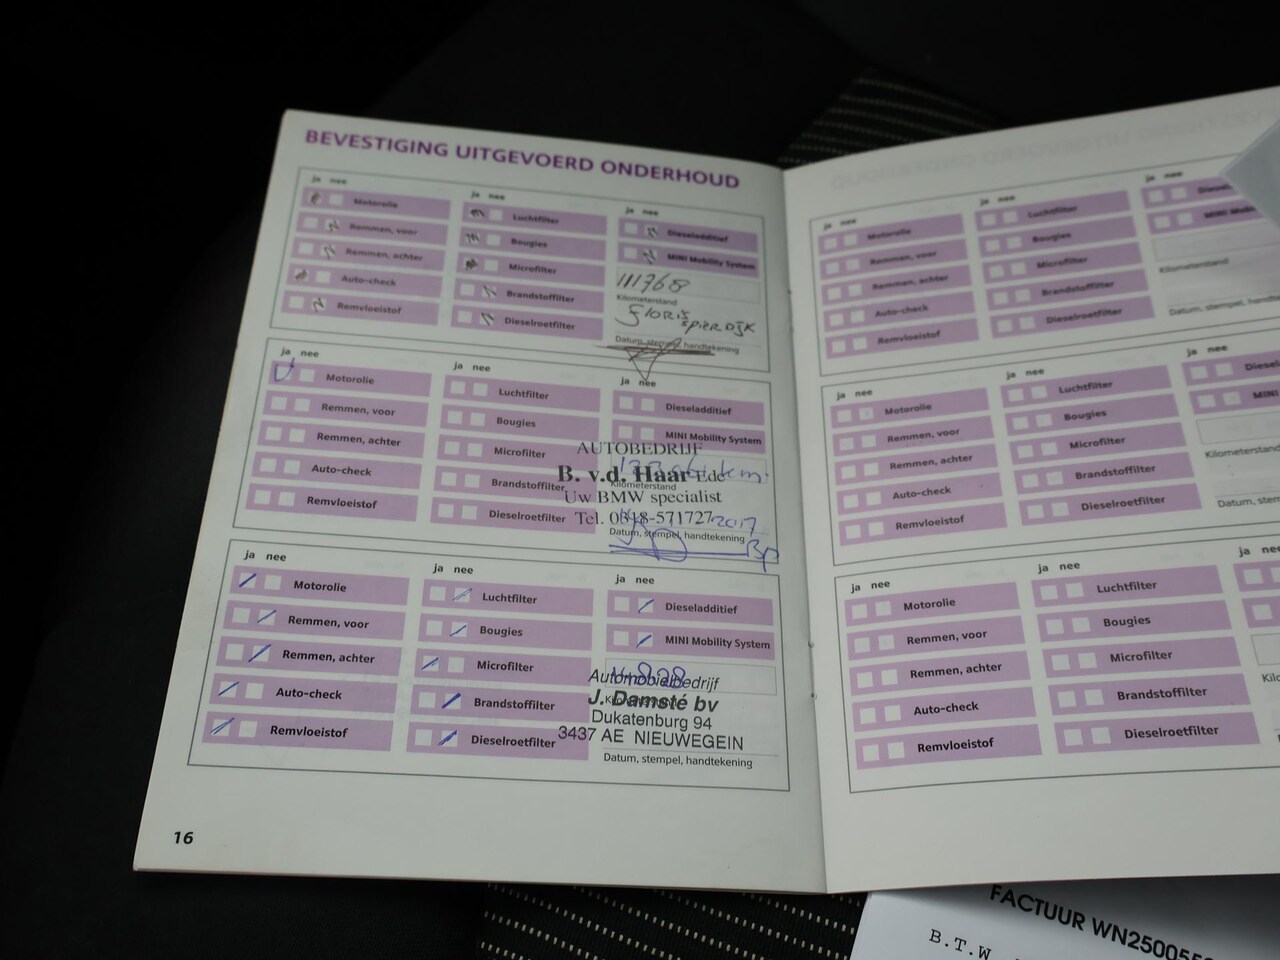 BEVESTIGING UITGEVOERD ONDERHOUD
ja nee
Motorolie
Remmen, voor
Remmen, achter
Auto-check
Remvloeistof
ja nee
Luchtfilter
Bougies
Microfilter
Brandstoffilter
Dieselroetfilter
ja nee
Dieseladditief
MINI Mobility System
111768
Kilometerstand
Floris
Spierdijk
Datum, stempel, handtekening
ja nee
Motorolie
Remmen, voor
Remmen, achter
Auto-check
Remvloeistof
ja nee
Luchtfilter
Bougies
Microfilter
Brandstoffilter
Dieselroetfilter
ja nee
Dieseladditief
MINI Mobility System
AUTOBEDRIJF
B. v.d. Haar Ede
Kilometerstand
Uw BMW specialist
Tel. 0318-571727
2017
Datum, stempel, handtekening
ja nee
Motorolie
Remmen, voor
Remmen, achter
Auto-check
Remvloeistof
ja nee
Luchtfilter
Bougies
Microfilter
Brandstoffilter
Dieselroetfilter
ja nee
Dieseladditief
MINI Mobility System
Automobielbedrijf
J. Damsté bv
Dukatenburg 94
3437 AE NIEUWEGEIN
Datum, stempel, handtekening
16
ja nee
Motorolie
Remmen, voor
Remmen, achter
Auto-check
Remvloeistof
ja nee
Luchtfilter
Bougies
Microfilter
Brandstoffilter
Dieselroetfilter
ja nee
Kilometerstand
Datum, stempel, handtekening
ja nee
Motorolie
Remmen, voor
Remmen, achter
Auto-check
Remvloeistof
ja nee
Luchtfilter
Bougies
Microfilter
Brandstoffilter
Dieselroetfilter
ja nee
MINI
Kilometerstand
ja nee
Motorolie
Remmen, voor
Remmen, achter
Auto-check
Remvloeistof
ja nee
Luchtfilter
Bougies
Microfilter
Brandstoffilter
Dieselroetfilter
ja
FACTUUR
B.T.W.